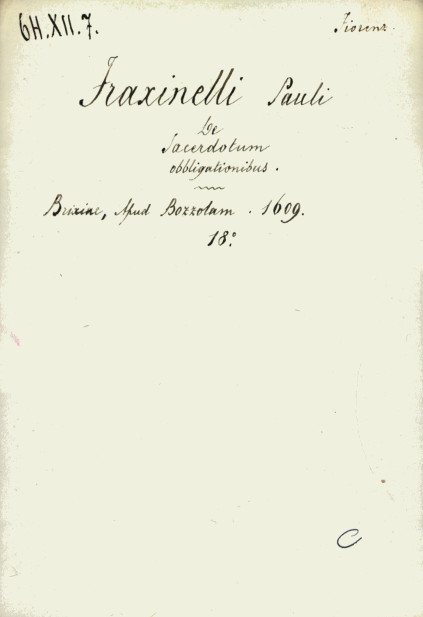 6H.XII.7.
Fiorenz.
Fraxinelli Pauli
De
Sacerdotum
obbligationibus.
Brixiae, Apud Bozzolam. 1609.
18.°
C